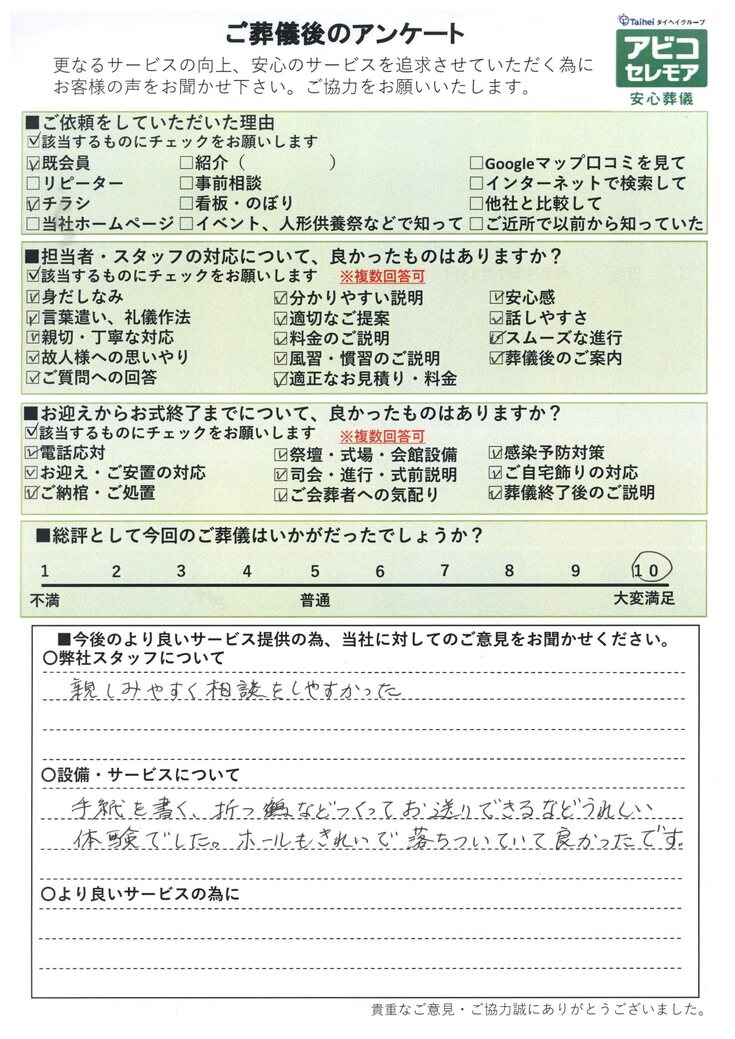 ご葬儀後のアンケート
Taihei タイヘイグループ
アビコ
セレモア
安心葬儀
更なるサービスの向上、安心のサービスを追求させていただく為に
お客様の声をお聞かせ下さい。ご協力をお願いいたします。
■ご依頼をしていただいた理由
☑該当するものにチェックをお願いします
☑既会員 □紹介（　　　　　） □Googleマップ口コミを見て
□リピーター □事前相談 □インターネットで検索して
☑チラシ □看板・のぼり □他社と比較して
□当社ホームページ □イベント、人形供養祭などで知って □ご近所で以前から知っていた
■担当者・スタッフの対応について、良かったものはありますか？
☑該当するものにチェックをお願いします ※複数回答可
☑身だしなみ ☑分かりやすい説明 ☑安心感
☑言葉遣い、礼儀作法 ☑適切なご提案 ☑話しやすさ
☑親切・丁寧な対応 ☑料金のご説明 ☑スムーズな進行
☑故人様への思いやり ☑風習・慣習のご説明 ☑葬儀後のご案内
☑ご質問への回答 ☑適正なお見積り・料金
■お迎えからお式終了までについて、良かったものはありますか？
☑該当するものにチェックをお願いします ※複数回答可
☑電話応対 ☑祭壇・式場・会館設備 ☑感染予防対策
☑お迎え・ご安置の対応 ☑司会・進行・式前説明 ☑ご自宅飾りの対応
☑ご納棺・ご処置 ☑ご会葬者への気配り ☑葬儀終了後のご説明
■総評として今回のご葬儀はいかがだったでしょうか？
1 2 3 4 5 6 7 8 9 10
不満 普通 大変満足
■今後のより良いサービス提供の為、当社に対してのご意見をお聞かせください。
〇弊社スタッフについて
親しみやすく相談をしやすかった
〇設備・サービスについて
手紙を書く、折り鶴などつくってお送りできるなどうれしい
体験でした。ホールもきれいで落ちついていて良かったです。
〇より良いサービスの為に
貴重なご意見・ご協力誠にありがとうございました。